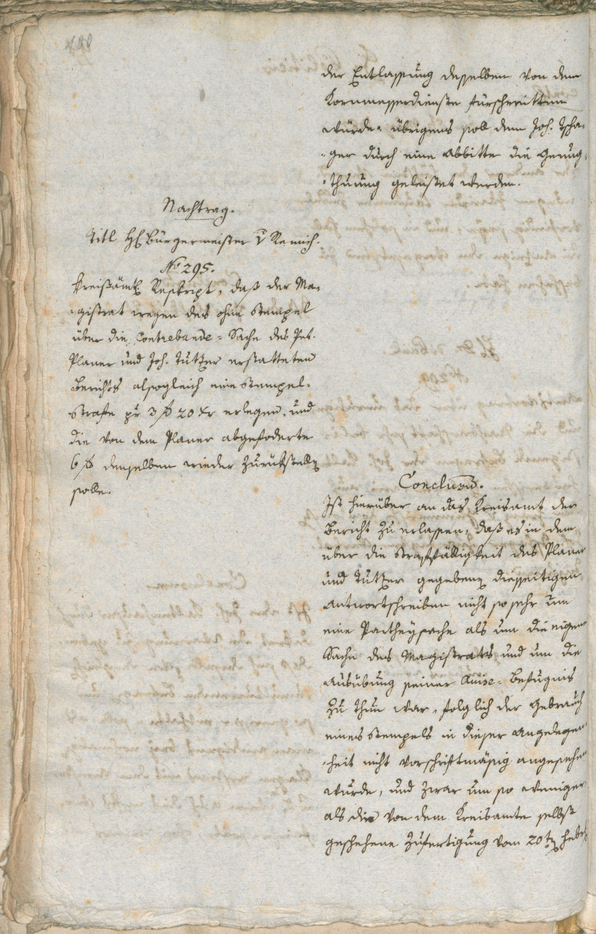 der Entlassung desselben von dem
Kornmesserdienste fürschreitten
würde. übrigens soll dem Joh. Tscha-
ger durch eine Abbitte die Genug-
thuung geleistet werden.
Nachtrag.
Titl H Bürgermeister v Remich.
No 295.
Kreißämtl Reskript, daß der Ma-
gistrat wegen des ohne Stempel
über die Contrebande-Sache des Jos.
Planer und Joh. Tutzer erstatteten
Berichts alsogleich eine Stempel-
Strafe zu 3 f 20 xr erlegen, und
die von dem Planer abgeforderte
6 f demselben wieder zurükstellen
solle.
Conclusum.
Ist hierüber an das Kreisamt der
Bericht zu erlassen, daß es in dem
über die Straffälligkeit des Planer
und Tutzer gegebenen diesseitigen
Antwortschreiben nicht so sehr um
eine Partheysache als um die eigene
Sache des Magistrats und um die
Ausübung seiner Befugnis
zu thun war, folglich der Gebrauch
eines Stempels in dieser Angelegen-
heit nicht vorschriftmäßig angesehen
wurde, und zwar um so weniger
als die von dem Kreisamte selbst
geschehene Zufertigung vom 20ten